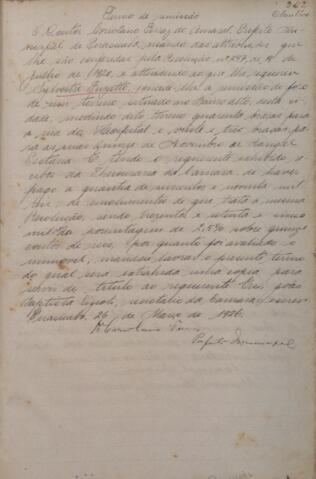 242
Termo de remissão
O Doutor Coriolano Ferraz do Amaral, Prefeito Mu-
nicipal de Piracicaba, usando das attribuições que
lhe são conferidas pela Resolução, nº 
de Junho de 1920, e attendendo ao que lhe requereu
concede-lhe a remissão do foro
de um terreno, situado no Bairro alto, nesta ci-
dade, medindo dito terreno quarenta braças para
a rua do Hospital e vinte e tres braças pa-
ra as ruas Quinze de Novembro e Rangel
Pestana. E, tendo o requerente exhibido re-
cibo da Thesouraria da Camara de haver
pago a quantia de e noventa mil
reis, de emolumentos de que trata a mesma
Resolução, sendo trezentos e setenta e cinco
mil reis porcentagem de 2,5% sobre quinze
contos de reis, por quanto foi avaliado o
immovel, mandei lavrar o presente termo
do qual será extrahida uma copia para
servir de titulo ao requerente. Eu, João
Baptista secretario da Camara, escrevi.
Piracicaba, 26 de Março de 1926.
Prefeito Municipal